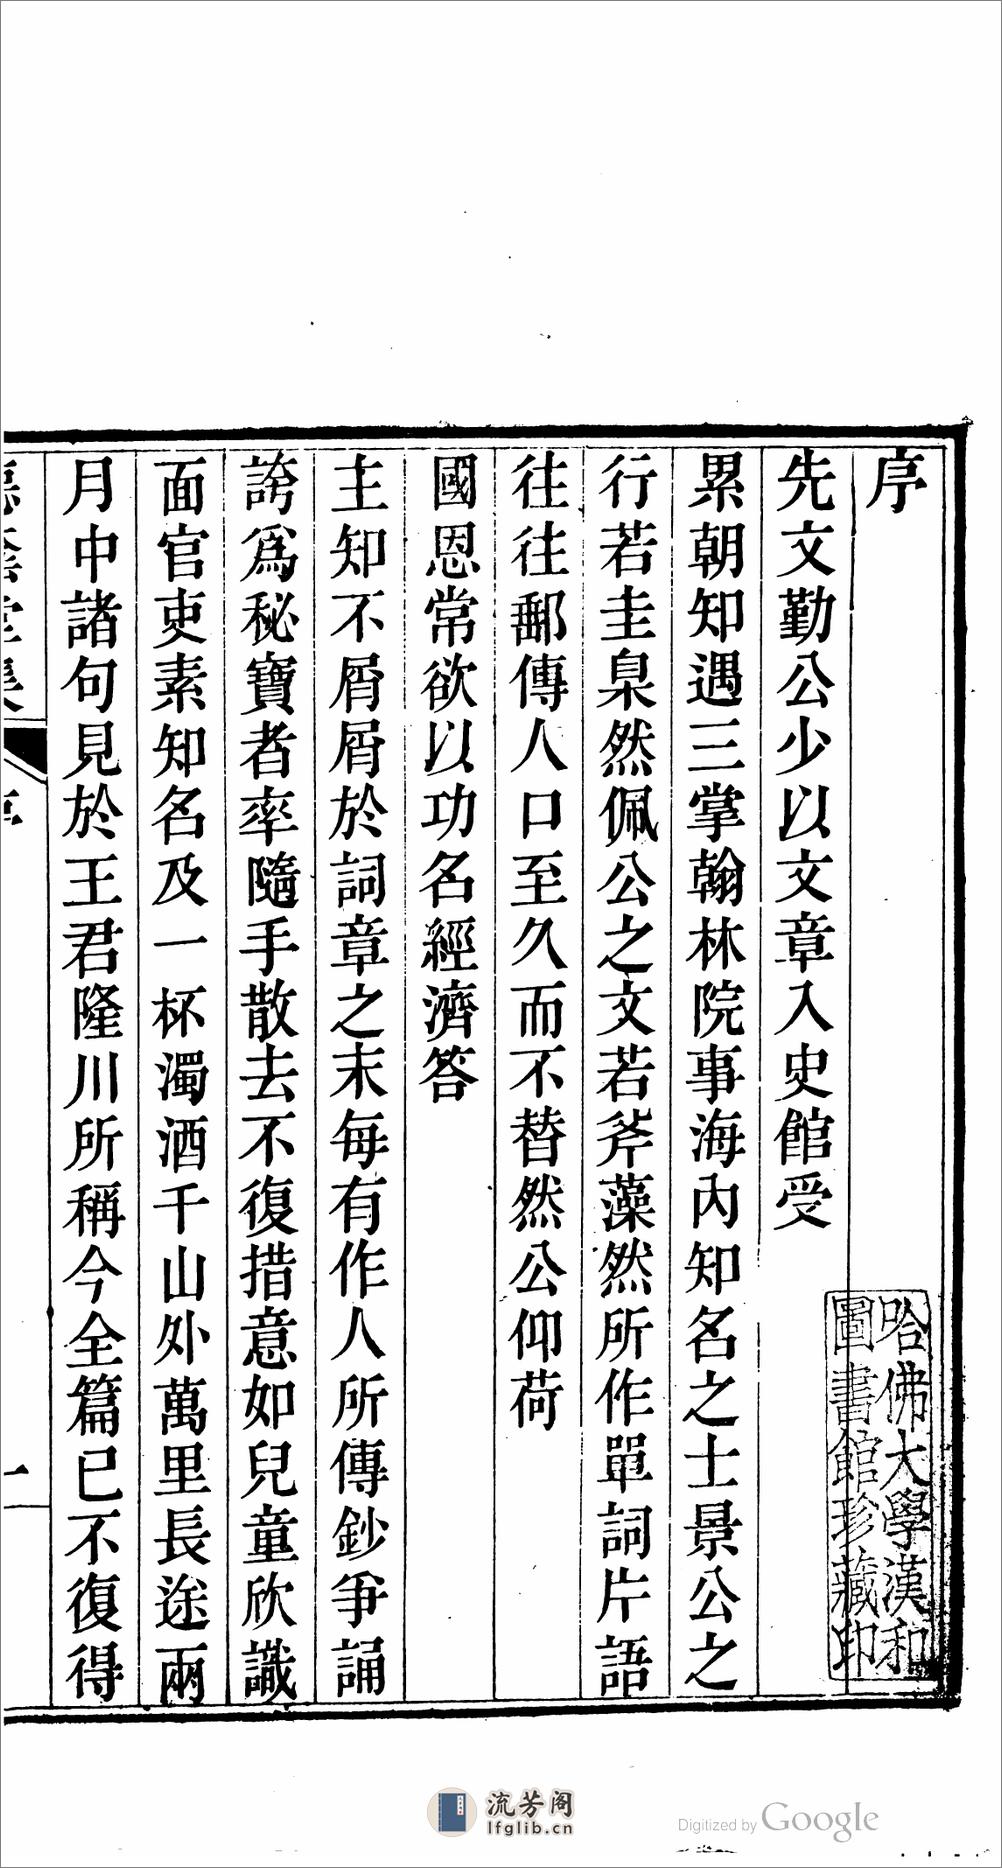 序
先文勤公少以文章入史館受
累朝知遇三掌翰林院事海內知名之士景公之
行若圭臬然佩公之文若斧藻然所作單詞片語
往往郵傳人口至久而不替然公仰荷
國恩常欲以功名經濟答
主知不屑屑於詞章之末每有作人所傳鈔爭誦
誇爲秘寶者率隨手散去不復措意如兒童欣識
面官吏素知名及一杯濁酒千山外萬里長途兩
月中諸句見於王君隆川所稱今全篇已不復得
序
一
哈佛大學漢和
圖書館珍藏印
流芳阁
lfglib.cn
Digitized by Google